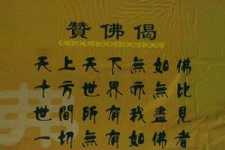 贊佛偈
天上天下無如佛
十方世界亦無比
世間所有我盡見
一切無有如佛者